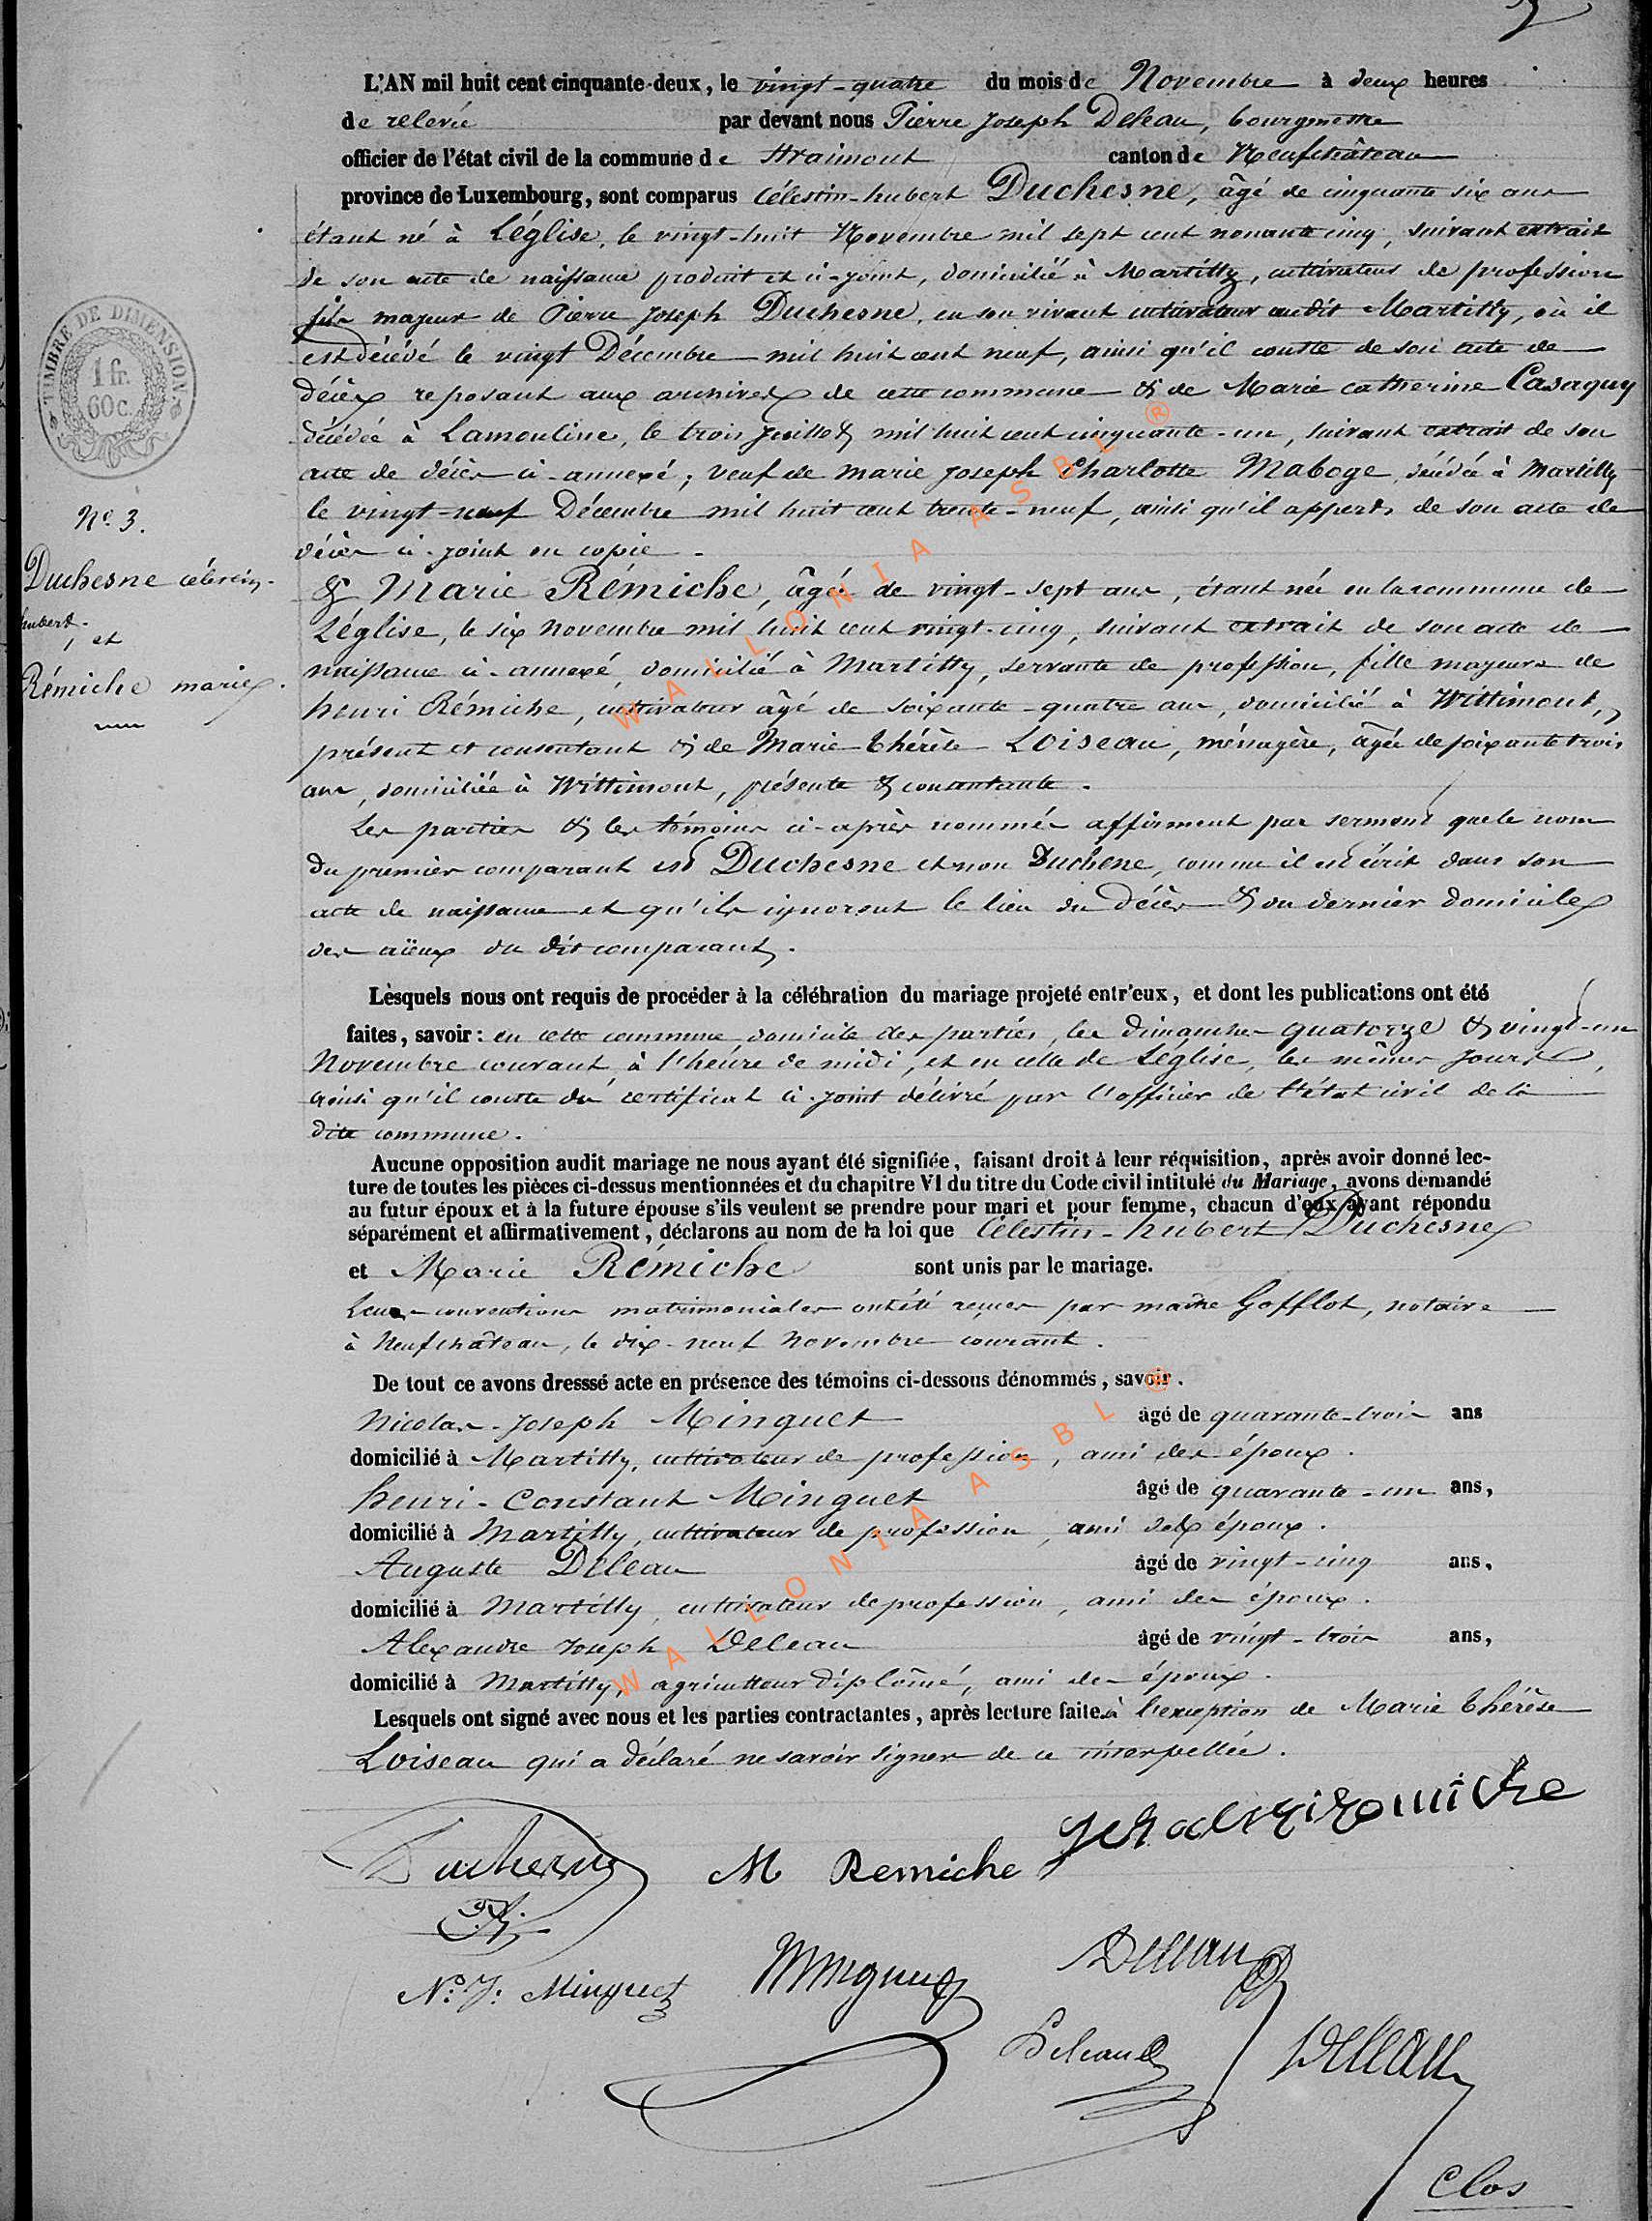 L'AN mil huit cent cinquante-deux, le vingt-quatre du mois de Novembre à deux heures
de relevée par devant nous Pierre Joseph Deleau, bourgmestre
officier de l'état civil de la commune de Straimont canton de Neufchâteau
province de Luxembourg, sont comparus Célestin-hubert Duchesne, âgé de cinquante six ans
étant né à Léglise, le vingt-huit Novembre mil sept cent nonante cinq, suivant extrait
de son acte de naissance produit et ci-joint, domicilié à Martilly, cultivateur de profession
fils majeur de Pierre Joseph Duchesne, en son vivant cultivateur audit Martilly, où il
est décédé le vingt Décembre mil huit cent neuf, ainsi qu'il conste de son acte de
décès reposant aux archives de cette commune & de Marie catherine Casaquy
décédée à Lamouline, le trois Juillet mil huit cent cinquante-un, suivant extrait de son
acte de décès ci-annexé; veuf de marie Joseph Charlotte Maboge, décédée à Martilly
le vingt-neuf Décembre mil huit cent trente-neuf, ainsi qu'il appert de son acte de
décès ci-joint en copie.
& Marie Rémiche, âgée de vingt-sept ans, étant née en la commune de
Léglise, le six novembre mil huit cent vingt-cinq, suivant extrait de son acte de
naissance ci-annexé, domicilié à Martilly, servante de profession, fille majeure de
henri Rémiche, cultivateur âgé de soixante-quatre ans, domicilié à Wittimont,
présent et consentant & de Marie-thérèse Loiseau, ménagère, âgée de soixante trois
ans, domiciliée à Wittimont, présente & consentante.
Les parties & les témoins ci-après nommés affirment par serment que le nom
du premier comparant est Duchesne et non Duchene, comme il est écrit dans son
acte de naissance et qu'ils ignorent le lieu du décès & du dernier domicile
des aïeux du dit comparant.
Lesquels nous ont requis de procéder à la célébration du mariage projeté entr'eux, et dont les publications ont été
faites, savoir: en cette commune domicile des parties, les dimanches quatorze & vingt-un
Novembre courant, à l'heure de midi, et en celle de Léglise, les mêmes jours,
ainsi qu'il conste du certificat ci-joint délivré par l'officier de l'état civil de la
dite commune.
Aucune opposition audit mariage ne nous ayant été signifiée, faisant droit à leur réquisition, après avoir donné lec-
ture de toutes les pièces ci-dessus mentionnées et du chapitre VI du titre du Code civil intitulé du Mariage, avons demandé
au futur époux et à la future épouse s'ils veulent se prendre pour mari et pour femme, chacun d'eux ayant répondu
séparément et affirmativement, déclarons au nom de la loi que Célestin-hubert Duchesne
et Marie Rémiche sont unis par le mariage.
Leurs conventions matrimoniales ont été reçues par maître Gofflot, notaire
à Neufchâteau, le dix-neuf Novembre courant.
De tout ce avons dresssé acte en présence des témoins ci-dessous dénommés, savoir.
Nicolas-Joseph Minguet âgé de quarante-trois ans
domicilié à Martilly, cultivateur de profession, ami des époux.
henri-Constant Minguet âgé de quarante-un ans,
domicilié à Martilly, cultivateur de profession, ami des époux.
Auguste Deleau âgé de vingt-cinq ans,
domicilié à Martilly, cultivateur de profession, ami des époux.
Alexandre Joseph Deleau âgé de vingt-trois ans,
domicilié à Martilly, agriculteur diplômé, ami des époux.
Lesquels ont signé avec nous et les parties contractantes, après lecture faite. à l'exception de Marie thérèse
Loiseau qui a déclaré ne savoir signer de ce interpellée.
Duchesne M Remiche
N. J. Minguet Minguet Deleau
Deleau Deleau
Clos
TIMBRE DE DIMENSION.
1 fr.
60 c.
No. 3.
Duchesne célestin-
hubert.
, et
Rémiche marie.
WALLONIA ASBL ®
WALLONIA ASBL ®